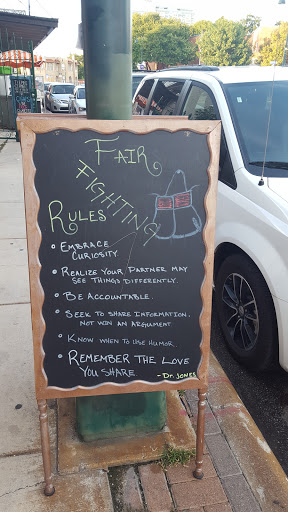 FAIR
FIGHTING
RULES
• EMBRACE
CURIOSITY.
• REALIZE YOUR PARTNER MAY
SEE THINGS DIFFERENTLY.
• BE ACCOUNTABLE.
• SEEK TO SHARE INFORMATION,
NOT WIN AN ARGUMENT
• KNOW WHEN TO USE HUMOR.
• REMEMBER THE LOVE
YOU SHARE.
- DR. JONES